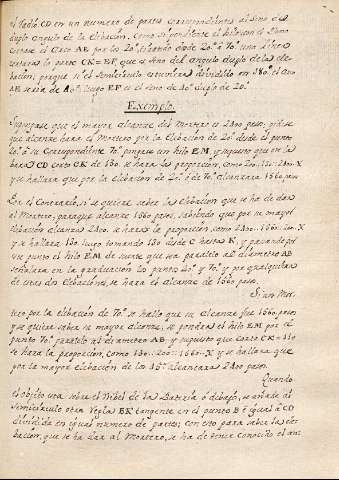 el Radio CD en un numero de partes correspondientes al Seno del
duplo angulo de la Elevacion, Como si por el tal el hilo en el plano
cortase el Arco AB por los 20°, tirando desde 20° á 70° una linea
cortara la parte CK = EF que es seno del angulo duplo de la ele-
bacion; porque si el Semicirculo estuviera dividido en 180° el arco
AE seria de 40° luego EF es el seno de 40° duplo de 20°
Exemplo.
Supongase que el mayor alcance del Mortero es 2400 pasos; pidese
que alcance hara el Mortero por la Elebacion de 20° desde el punto
20° a su Correspondiente 70° pongase un hilo EM, y supuesto que en la
bara CD corte CK de 130. se hara la proporcion, como 200=130=2400=X
y se hallara que por la elebacion de 20° ó de 70° alcanzara 1560 pasos
Por el Contrario, si se quiere saber la Elebacion que se ha de dar
al Mortero, para que alcance 1560 pasos, sabiendo que por su mayor
elebacion alcanza 2400. se hara la proporcion, como 2400=1560=200=X
y se hallara 130. luego tomando 130 desde C hasta K, y pasando por
este punto el hilo EM de suerte que sea paralelo al diametro AB
señalara en la graduacion los puntos 20° y 70° y por qualquiera
de estas dos Elebaciones, se hara el alcance de 1560 pasos.
Si un Mor-
tero por la elebacion de 70° se hallo que su alcance fue 1560 pasos
y se quiera saber su mayor alcance, se pondra el hilo EM por el
punto 70° paralelo al diametro AB y supuesto que corte CK=130
se hara la proporcion, como 130=200=1560=X y se hallara que
por la mayor elebacion de los 45° alcanzara 2400 pasos.
Quando
el objeto esta sobre el Nibel de la Bateria ó debajo, se añade al
Semicirculo otra Regla BK tangente en el punto B é igual á CD
dividida en igual numero de partes; con esto para saber la ele-
bacion, que se ha dar al Mortero, se ha de tener conocido el an-